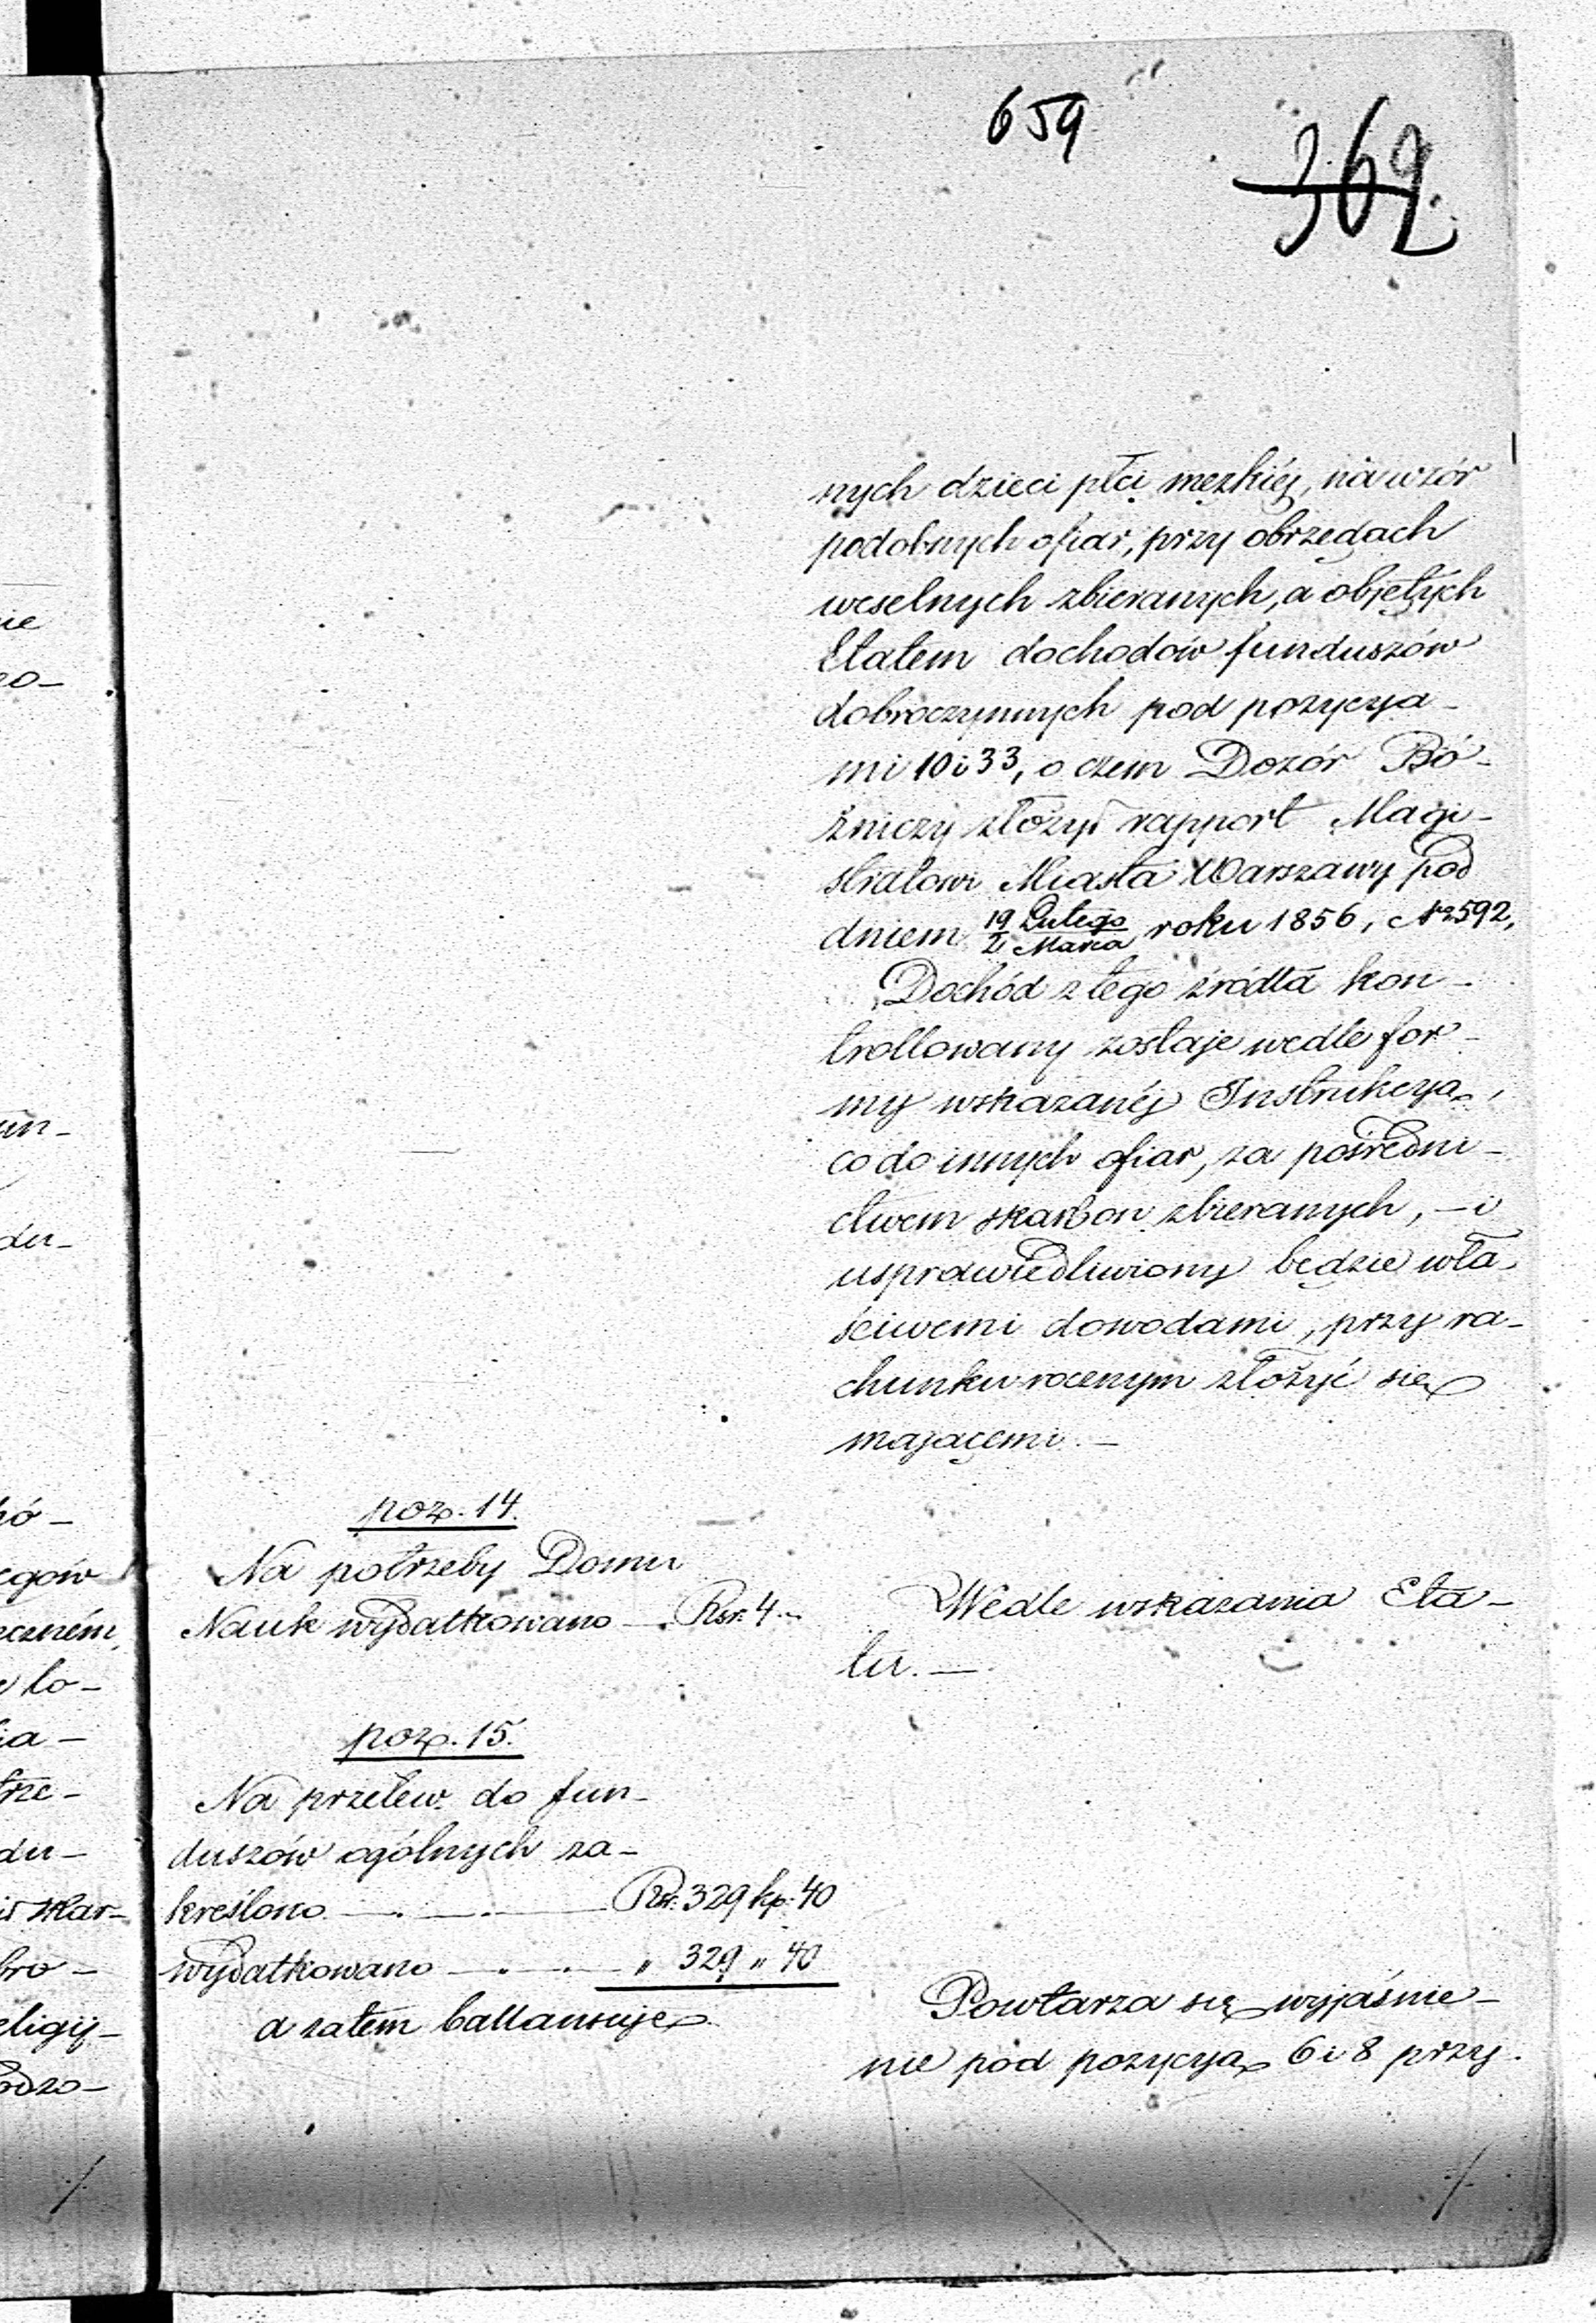 659
369.
nych dzieci płci męzkiéj, na wzór
podobnych ofiar, przy obrzędach
weselnych zbieranych, a objętych
Etatem dochodów funduszów
dobroczynnych pod pozycya-
mi 10 i 33, o czem Dozór Bó-
żniczy złożył rapport Magi-
stratowi Miasta Warszawy pod
dniem 19 Lutego / 2 Marca roku 1856, No 592,
Dochód z tego źródła kon-
trollowany zostaje wedle for-
my wskazanéj Instrukcyą,
co do innych ofiar, za pośredni-
ctwem skarbon zbieranych, - i
usprawiedliwiony będzie wła-
ściwemi dowodami, przy ra-
chunku rocznym złożyć się
mającemi. -
poz. 14.
Na potrzeby Domu
Nauk wydatkowano - Rsr. 4 -
Wedle wskazania Eta-
tu. -
poz. 15.
Na przelew do fun-
duszów ogólnych za-
kreślono - . - . - Rsr. 329 kp. 40
wydatkowano - . - . - " 329 " 40
a zatem ballansuje
Powtarza się wyjaśnie-
nie pod pozycyą 6 i 8 przy-
ie
zo-
un-
du-
hó-
egów
eczném,
to-
ia-
trze-
du-
skar-
bro-
eligij-
odzo-